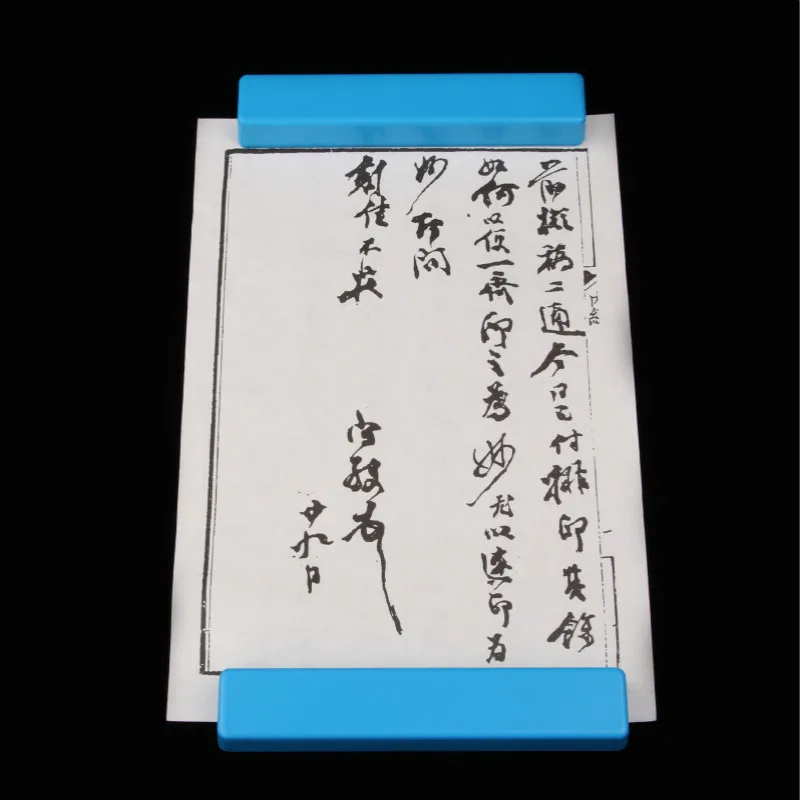 前擬稿二通今日已付排印其餘
如何以便一齊印之為妙尤以速印為
妙 問
刻佳不具
廿九日